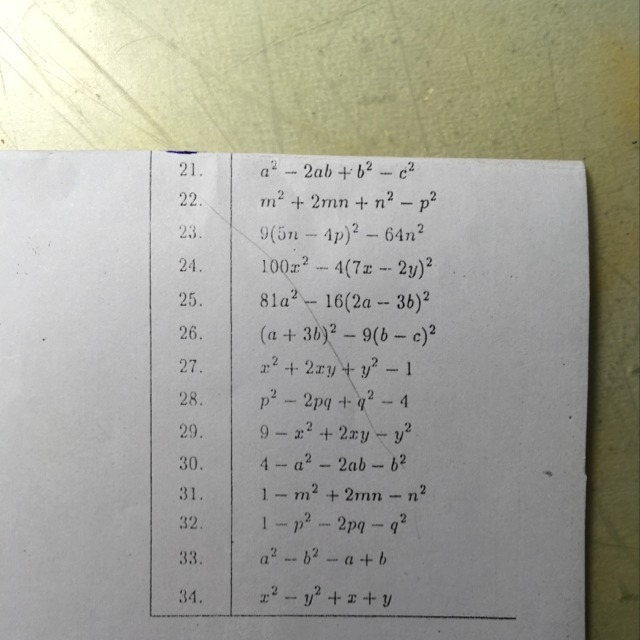 21. a² − 2ab + b² − c²
22. m² + 2mn + n² − p²
23. 9(5n − 4p)² − 64n²
24. 100x² − 4(7x − 2y)²
25. 81a² − 16(2a − 3b)²
26. (a + 3b)² − 9(b − c)²
27. x² + 2xy + y² − 1
28. p² − 2pq + q² − 4
29. 9 − x² + 2xy − y²
30. 4 − a² − 2ab − b²
31. 1 − m² + 2mn − n²
32. 1 − p² − 2pq − q²
33. a² − b² − a + b
34. x² − y² + x + y